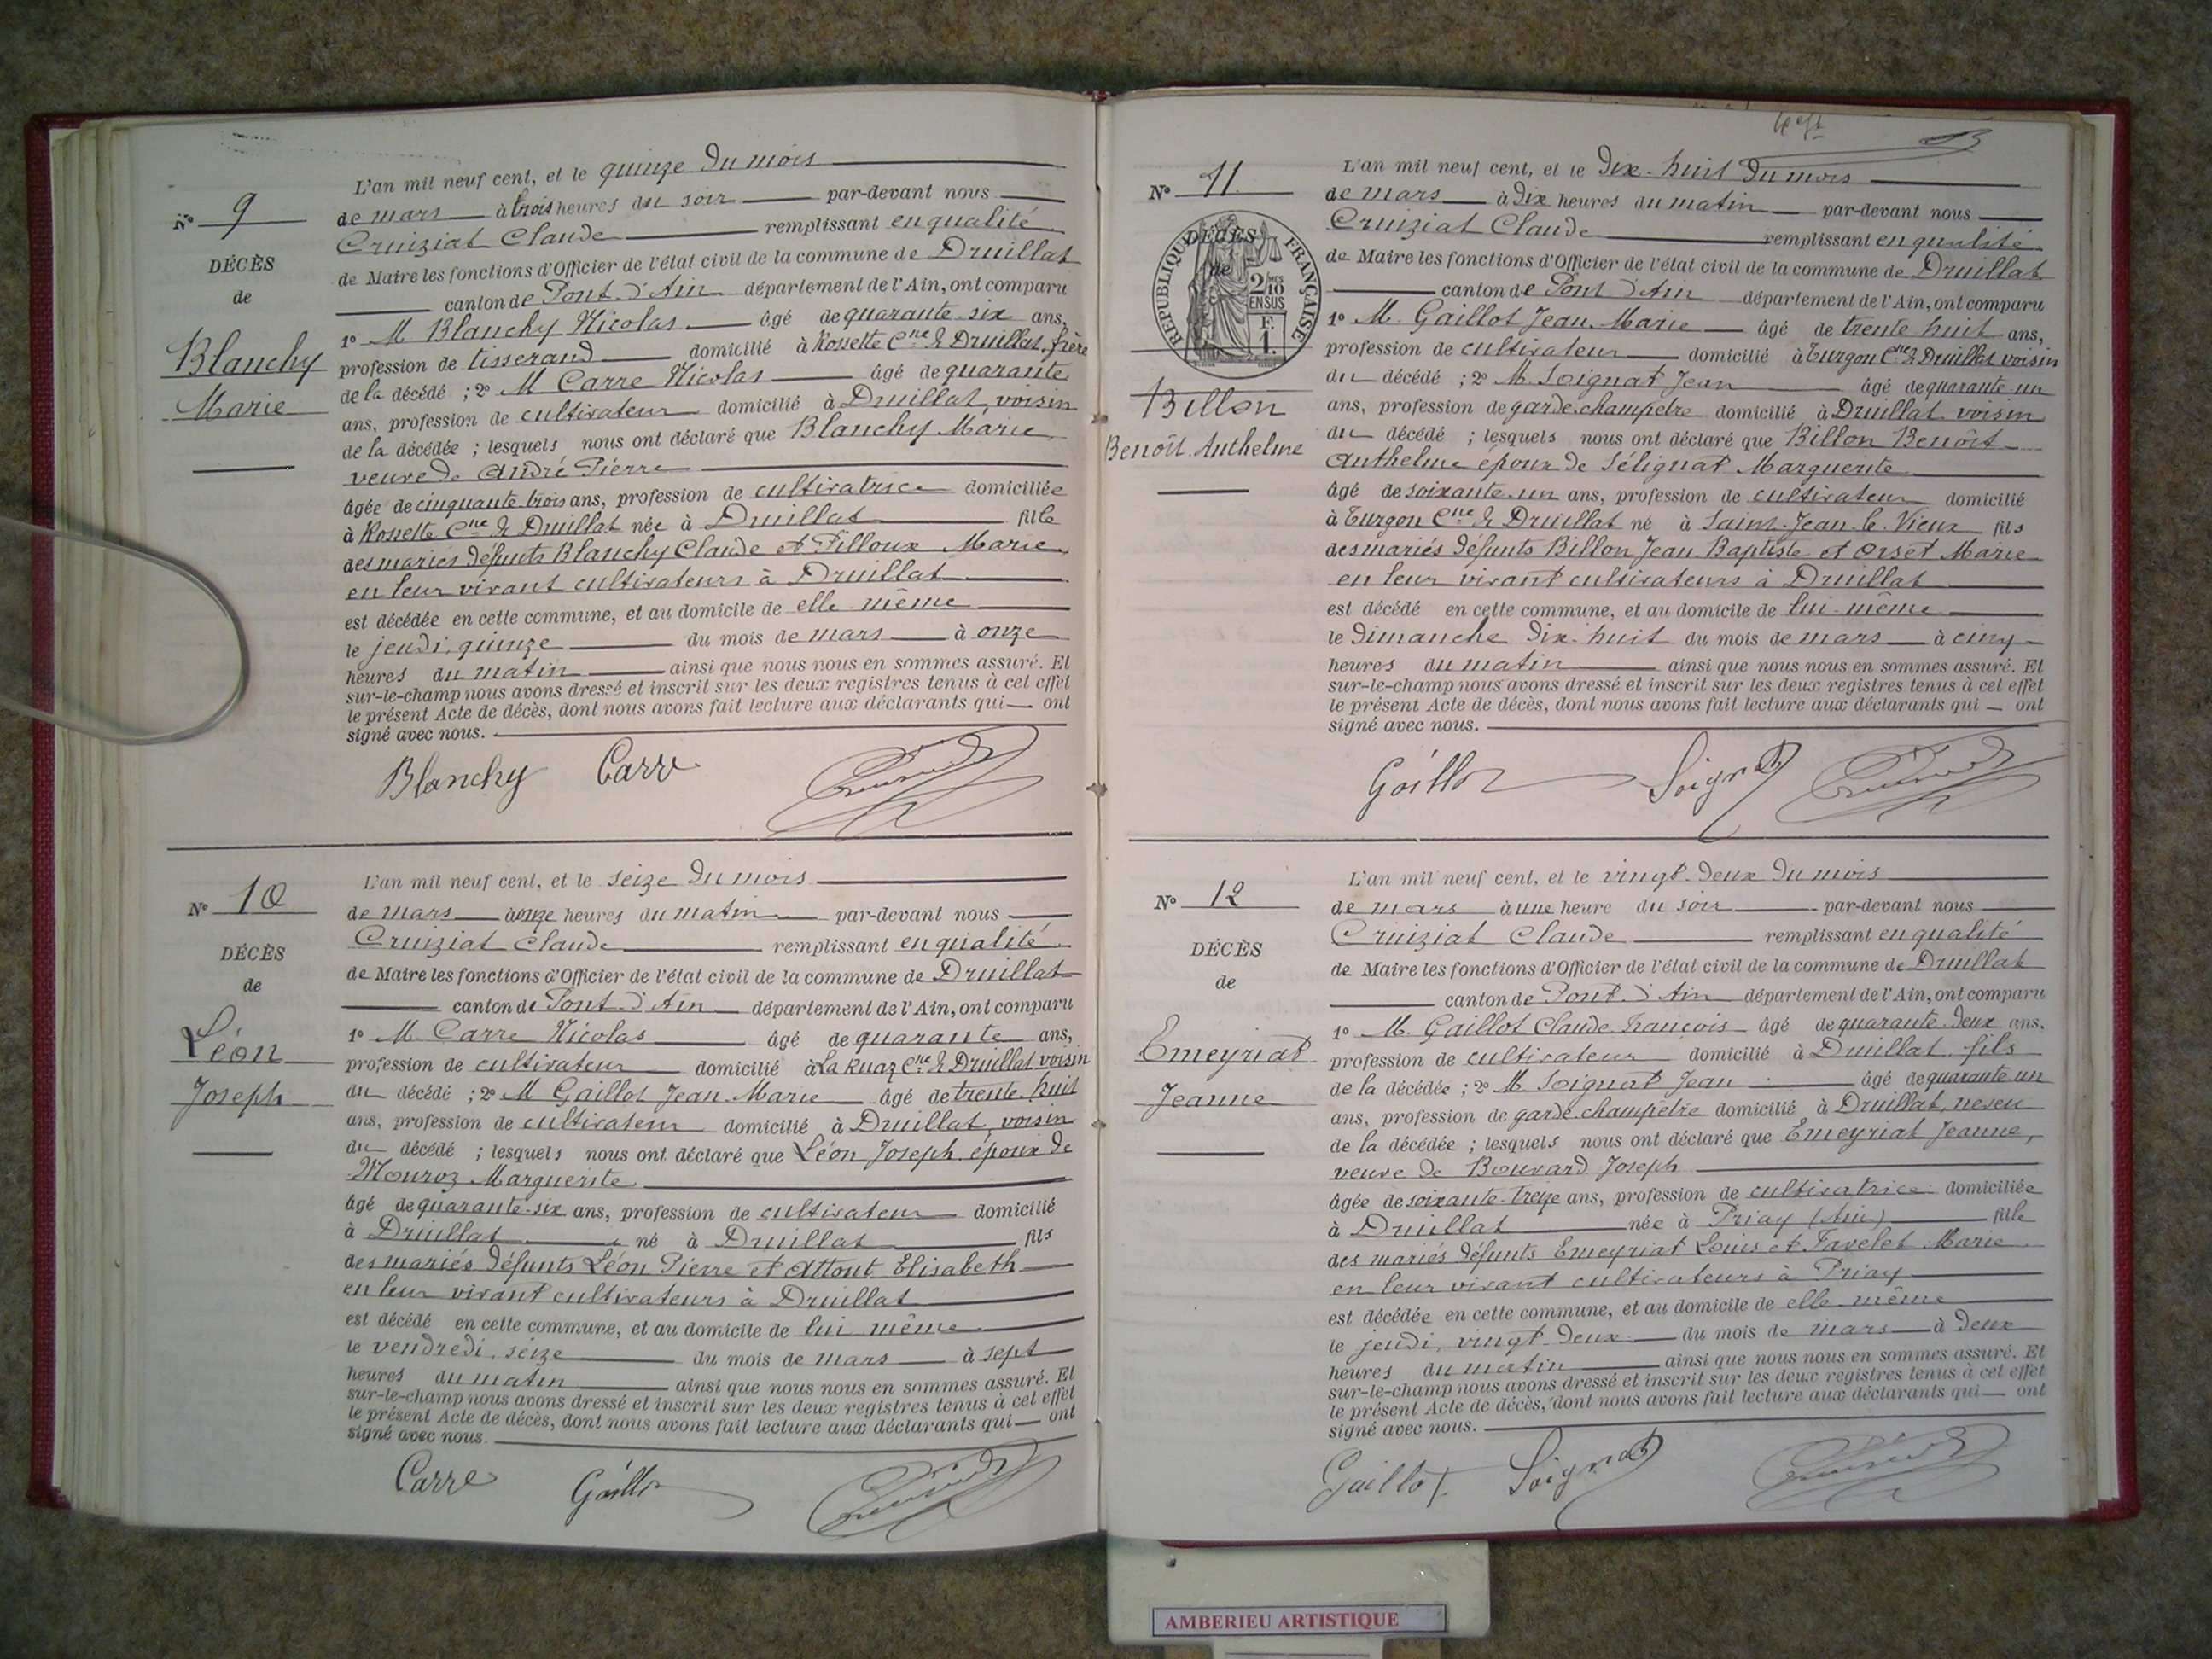 N° 9
DÉCÈS
de
Blanchy
Marie
L'an mil neuf cent, et le quinze du mois
de mars à trois heures du soir par-devant nous
Cruiziat Claude remplissant en qualité
de Maire les fonctions d'Officier de l'état civil de la commune de Druillat
canton de Pont-d'Ain département de l'Ain, ont comparu
1° M. Blanchy Nicolas âgé de quarante-six ans,
profession de tisserand domicilié à Rossette Cne de Druillat, frère
de la décédé ; 2° M Carre Nicolas âgé de quarante
ans, profession de cultivateur domicilié à Druillat, voisin
de la décédée ; lesquels nous ont déclaré que Blanchy Marie
veuve de André Pierre
âgée de cinquante trois ans, profession de cultivatrice domiciliée
à Rossette Cne de Druillat née à Druillat fille
des mariés défunts Blanchy Claude et Pilloux Marie
en leur vivant cultivateurs à Druillat
est décédée en cette commune, et au domicile de elle-même
le jeudi, quinze du mois de mars à onze
heures du matin ainsi que nous nous en sommes assuré. Et
sur-le-champ nous avons dressé et inscrit sur les deux registres tenus à cet effet
le présent Acte de décès, dont nous avons fait lecture aux déclarants qui ont
signé avec nous.
Blanchy Carre
N° 10
DÉCÈS
de
Léon
Joseph
L'an mil neuf cent, et le seize du mois
de mars à onze heures du matin par-devant nous
Cruiziat Claude remplissant en qualité
de Maire les fonctions d'Officier de l'état civil de la commune de Druillat
canton de Pont-d'Ain département de l'Ain, ont comparu
1° M Carre Nicolas âgé de quarante ans,
profession de cultivateur domicilié à La Ruaz Cne de Druillat voisin
du décédé ; 2° M Gaillot Jean-Marie âgé de trente huit
ans, profession de cultivateur domicilié à Druillat, voisin
du décédé ; lesquels nous ont déclaré que Léon Joseph, époux de
Mouroz Marguerite
âgé de quarante-six ans, profession de cultivateur domicilié
à Druillat né à Druillat fils
des mariés défunts Léon Pierre et Attout Elisabeth
en leur vivant cultivateurs à Druillat
est décédé en cette commune, et au domicile de lui même
le vendredi, seize du mois de mars à sept
heures du matin ainsi que nous nous en sommes assuré. Et
sur-le-champ nous avons dressé et inscrit sur les deux registres tenus à cet effet
le présent Acte de décès, dont nous avons fait lecture aux déclarants qui ont
signé avec nous.
Carre Gaillot
N° 11
DÉCÈS
de
RÉPUBLIQUE FRANÇAISE
2/10 EN SUS
F. 1.
Billon
Benoît Anthelme
L'an mil neuf cent, et le dix-huit du mois
de mars à dix heures du matin par-devant nous
Cruiziat Claude remplissant en qualité
de Maire les fonctions d'Officier de l'état civil de la commune de Druillat
canton de Pont d'Ain département de l'Ain, ont comparu
1° M. Gaillot Jean-Marie âgé de trente huit ans,
profession de cultivateur domicilié à Turgon Cne de Druillat voisin
du décédé ; 2° M. Soignat Jean âgé de quarante un
ans, profession de garde-champetre domicilié à Druillat voisin
du décédé ; lesquels nous ont déclaré que Billon Benoît
Anthelme époux de Sélignat Marguerite
âgé de soixante-un ans, profession de cultivateur domicilié
à Turgon Cne de Druillat né à Saint-Jean-le-Vieux fils
des mariés défunts Billon Jean Baptiste et Orset Marie
en leur vivant cultivateurs à Druillat
est décédé en cette commune, et au domicile de lui-même
le Dimanche dix-huit du mois de mars à cinq
heures du matin ainsi que nous nous en sommes assuré. Et
sur-le-champ nous avons dressé et inscrit sur les deux registres tenus à cet effet
le présent Acte de décès, dont nous avons fait lecture aux déclarants qui ont
signé avec nous.
Gaillot Soignat
N° 12
DÉCÈS
de
Emeyriat
Jeanne
L'an mil neuf cent, et le vingt-deux du mois
de mars à une heure du soir par-devant nous
Cruiziat Claude remplissant en qualité
de Maire les fonctions d'Officier de l'état civil de la commune de Druillat
canton de Pont-d'Ain département de l'Ain, ont comparu
1° M. Gaillot Claude-François âgé de quarante-deux ans,
profession de cultivateur domicilié à Druillat fils
de la décédée ; 2° M Soignat Jean âgé de quarante un
ans, profession de garde-champêtre domicilié à Druillat, neveu
de la décédée ; lesquels nous ont déclaré que Emeyriat Jeanne,
veuve de Bouvard Joseph
âgée de soixante-treize ans, profession de cultivatrice domiciliée
à Druillat née à Priay (Ain) fille
des mariés défunts Emeyriat Louis et Favelet Marie
en leur vivant cultivateurs à Priay
est décédée en cette commune, et au domicile de elle-même
le jeudi, vingt-deux du mois de mars à deux
heures du matin ainsi que nous nous en sommes assuré. Et
sur-le-champ nous avons dressé et inscrit sur les deux registres tenus à cet effet
le présent Acte de décès, dont nous avons fait lecture aux déclarants qui ont
signé avec nous.
Gaillot Soignat
AMBERIEU ARTISTIQUE